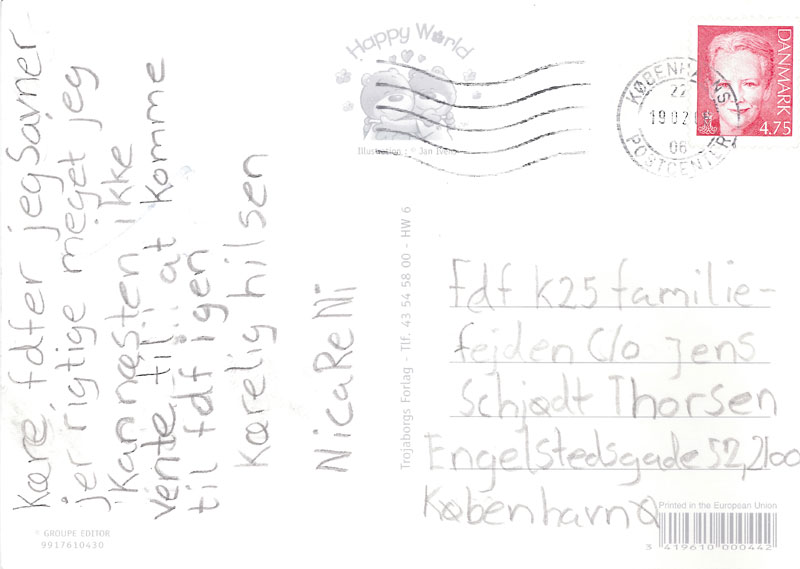 Kære fdfer jeg Savner
jer rigtige meget jeg
Kan næsten ikke
vente til at komme
til fdf igen
Kærelig hilsen
NicaReNi
Happy World
Illustration : © Jan Ivens
KØBENHAVNS
22
POSTCENTER
06
DANMARK
4.75
Trojaborgs Forlag - Tlf. 43 54 58 00 - HW 6
Fdf K25 familie-
fejden C/o Jens
Schjødt Thorsen
Engelstedsgade 52, 2100
København Ø
Printed in the European Union
3 419610 000442
© GROUPE EDITOR
9917610430